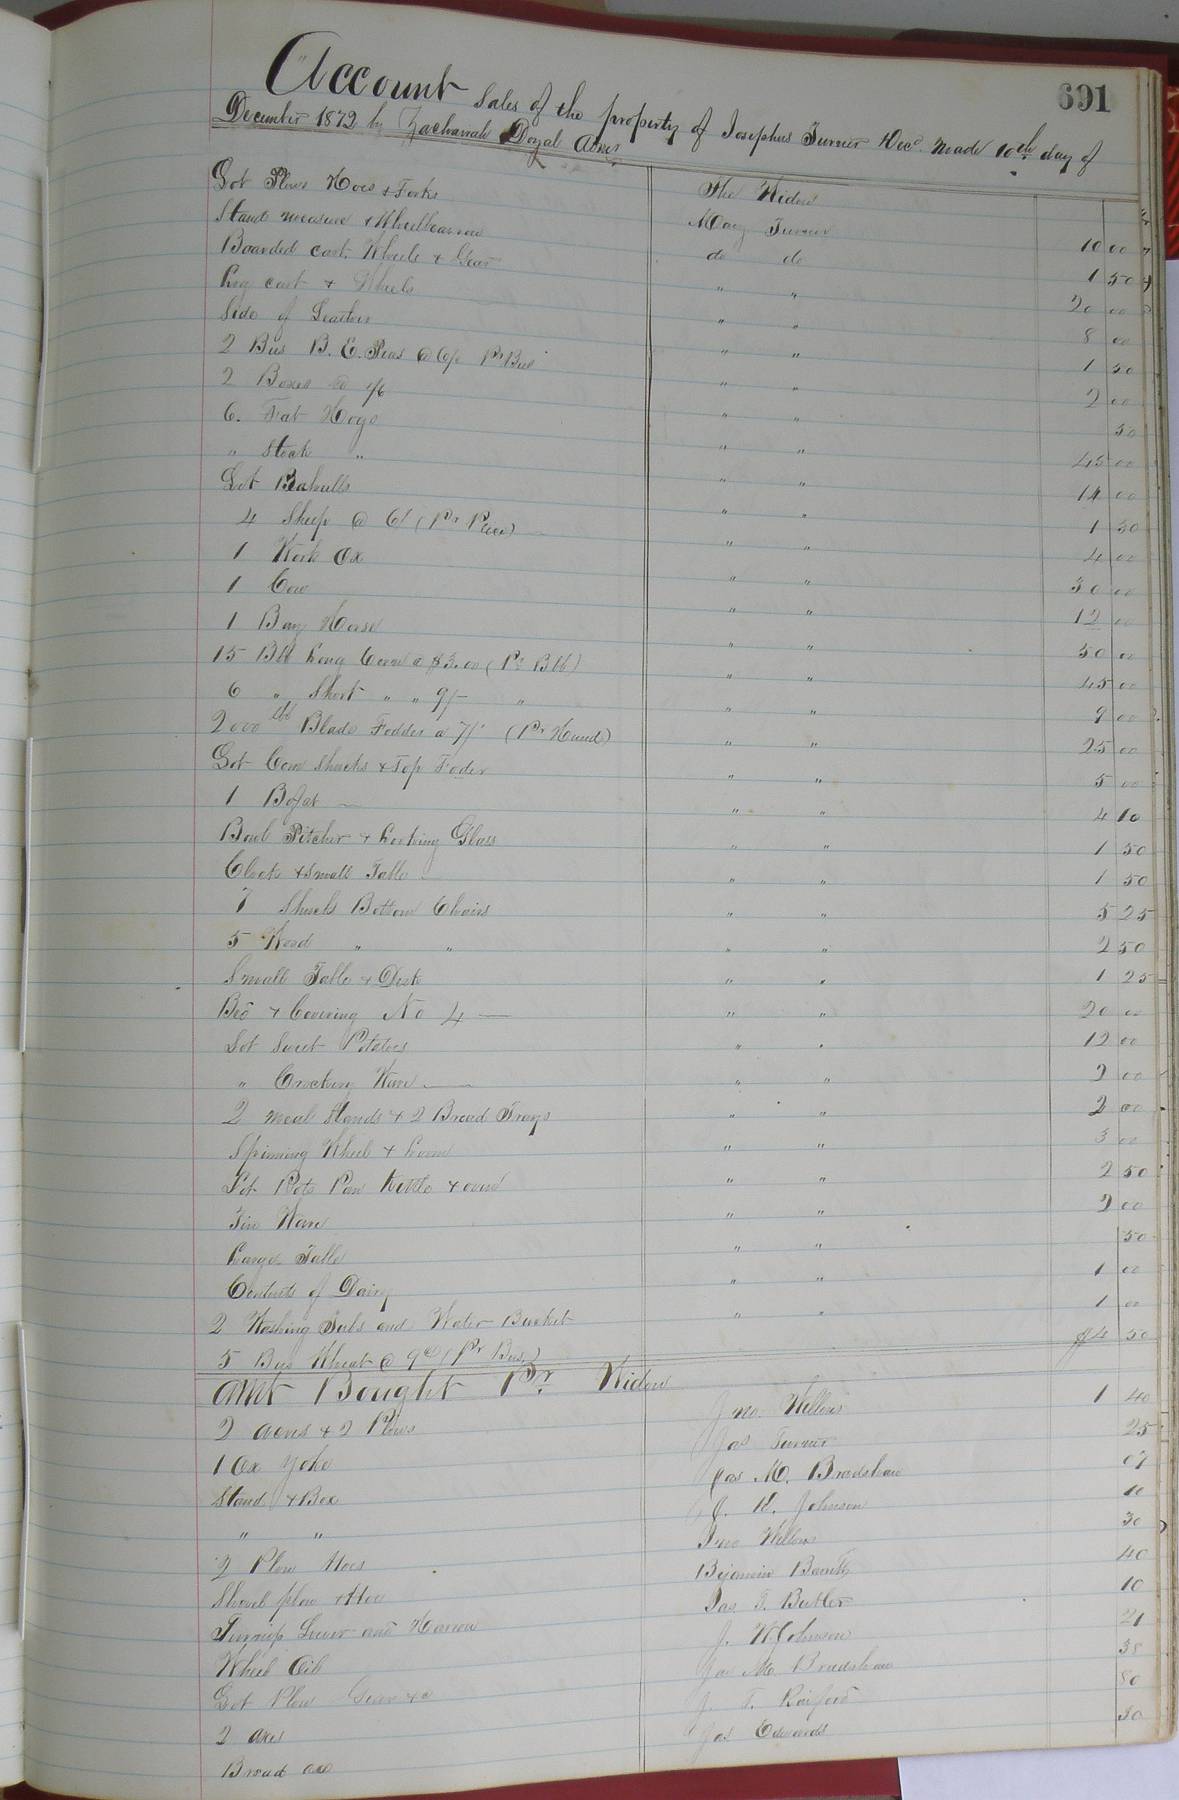 691
Account Sales of the property of Josephus Turner Decd. made 10th day of
December 1872 by Zachariah Doyal Admr
Lot Plows Hoes & Forks The Widow 10 00
Stand measure & Wheelbarrow Mary Turner 1 50
Boarded cart, Wheels & Gear do do 20 00
Log cart & Wheels " " 8 00
Side of Leather " " 1 50
2 Bus B. E. Peas @ 6/ Pr Bus " " 2 00
2 Boxes @ 1/6 " " 50
6. Fat Hogs " " 45 00
" Stock " " " 14 00
Lot " " 1 50
4 Sheep @ 6/ (Pr Piece) " " 4 00
1 Work Ox " " 30 00
1 Cow " " 12 00
1 Bay Horse " " 50 00
15 Bbl Long Corn @ $3.00 (Pr Bbl) " " 45 00
6 " Short " " 9/- " " " 9 00
2000 lbs Blade Fodder @ 7/ (Pr Hund) " " 25 00
Lot Corn Shucks & Top Foder " " 5 00
1 Bofat " " 4 10
Bowl Pitcher & Looking Glass " " 1 50
Clock & Small Table " " 1 50
7 Shuck Bottom Chairs " " 5 25
5 Wood " " " " 2 50
Small Table & Desk " " 1 25
Bed & Covering No 4 " " 20 00
Lot Sweet Potatoes " " 12 00
" Crockery Ware " " 2 00
2 meal Stands & 2 Bread Trays " " 2 00
Spinning Wheel & Loom " " 3 00
Lot Pots Pan Kettle & oven " " 2 50
Tin Ware " " 2 00
Large Table " " 50
Contents of Dairy " " 1 00
2 Washing Tubs and Water Bucket " " 1 00
5 Bus Wheat @ 9 (Pr Bus.) 50
Amt Bought Pr. Widow
2 & 2 Plows Jno. 1 40
1 Ox Yoke Jas Turner 25
Stand & Box Jas M. Bradshaw 07
" " J. Johnson 10
2 Plow Hoes Jno 30
Shovel plow & Hoe 40
Turnip and Harrow Jas T. Butler 10
Wheel J. W Johnson 21
Lot Plow Gear &c Jas M. Bradshaw 38
2 axes J. T. Raiford 80
Broad axe Jas Edwards 30